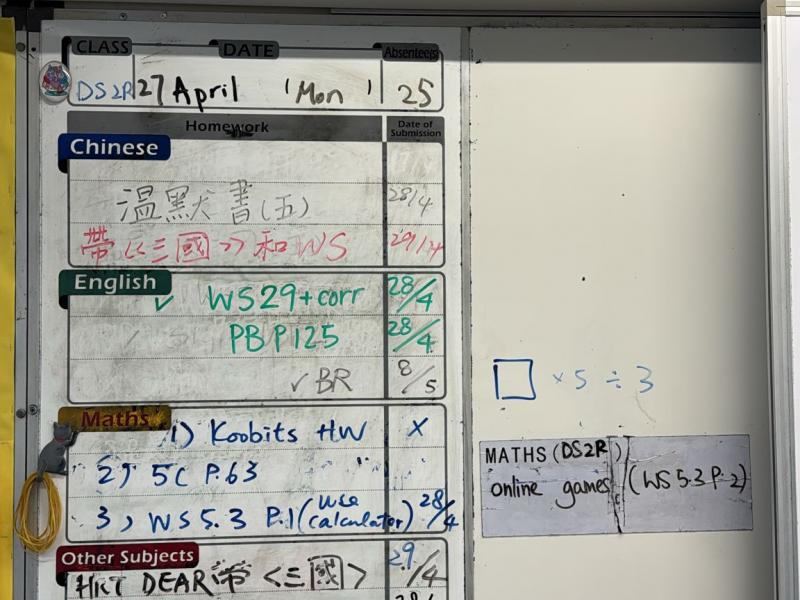 CLASS DATE Absentee(s)
DS2R 27 April (Mon) 25
Homework Date of Submission
Chinese
溫默書(五) 28/4
帶《三國》和WS 29/4
English
✓ WS29+corr 28/4
PB P125 28/4
✓BR 8/5
Maths
1) Koobits HW ×
2) 5C P.63 " "
3) WS 5.3 P.1 (use calculator) 28/4
Other Subjects
HRT DEAR 帶<三國> 29/4
□ × 5 ÷ 3
MATHS (DS2R)
online games (WS 5.3 P.2)